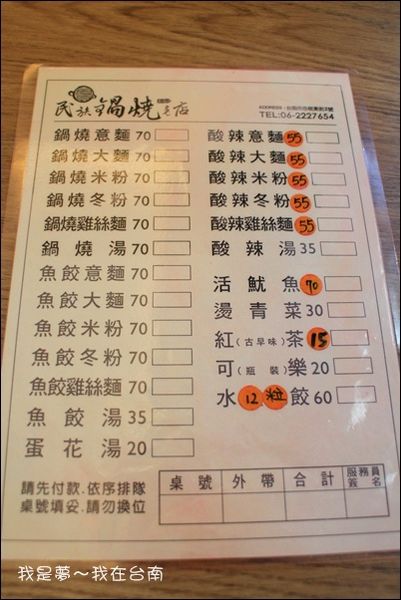 民族鍋燒老店
TEL:06-2227654
鍋燒意麵 70
鍋燒大麵 70
鍋燒米粉 70
鍋燒冬粉 70
鍋燒雞絲麵 70
鍋燒湯 70
魚餃意麵 70
魚餃大麵 70
魚餃米粉 70
魚餃冬粉 70
魚餃雞絲麵 70
魚餃湯 35
蛋花湯 20
酸辣意麵 55
酸辣大麵 55
酸辣米粉 55
酸辣冬粉 55
酸辣雞絲麵 55
酸辣湯 35
活魷魚 70
燙青菜 30
紅(古早味)茶 15
可(瓶裝)樂 20
水12粒餃 60
請先付款.依序排隊
桌號填妥.請勿換位
桌號 外帶 合計 服務員簽名
我是夢~我在台南